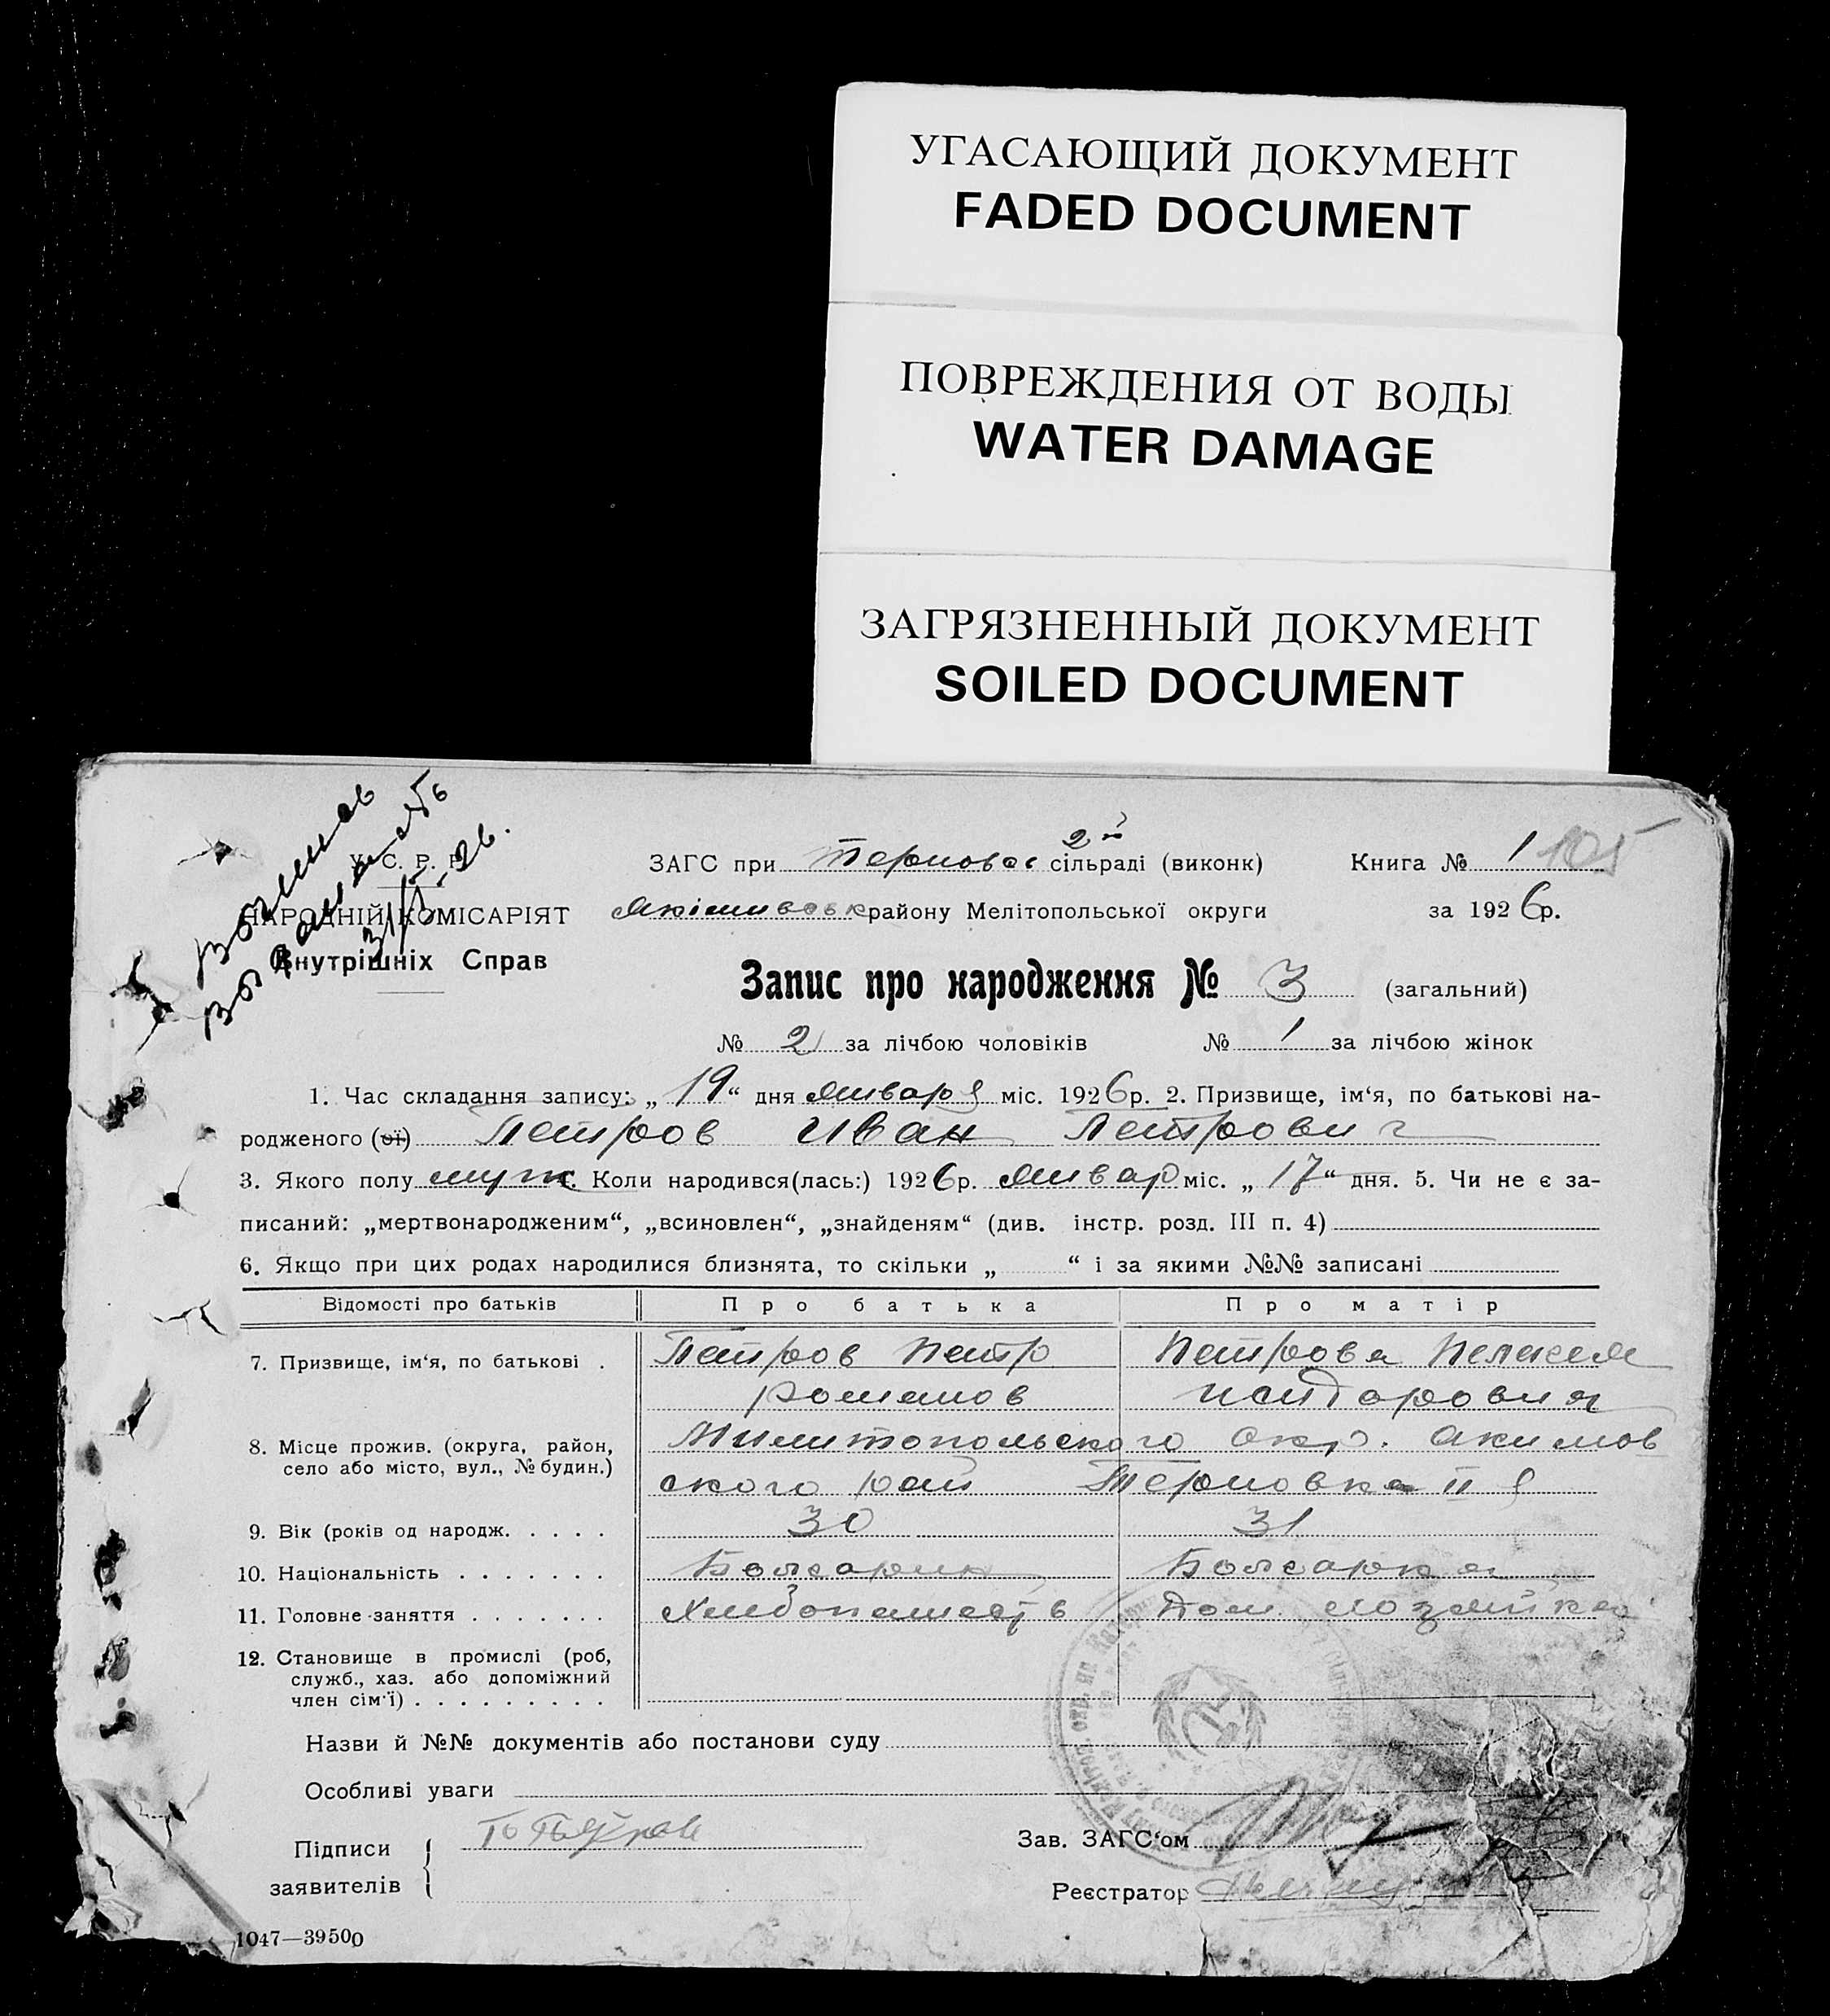 УГАСАЮЩИЙ ДОКУМЕНТ
FADED DOCUMENT
ПОВРЕЖДЕНИЯ ОТ ВОДЫ
WATER DAMAGE
ЗАГРЯЗНЕННЫЙ ДОКУМЕНТ
SOILED DOCUMENT
У. С. Р. Р.
НАРОДНІЙ КОМІСАРІЯТ
Внутрішніх Справ
31/V-26.
ЗАГС при Терновс 2й сільраді (виконк) Книга № 1 105
Якімивськ району Мелітопольської округи за 1926р.
Запис про народження № 3 (загальний)
№ 2 за лічбою чоловіків № 1 за лічбою жінок
1. Час складання запису: „19“ дня января міс. 1926р. 2. Призвище, ім‘я, по батькові на-
родженого (ої) Петров Иван Петрович
3. Якого полу муж. Коли народився(лась:) 1926р. январ міс. „17“ дня. 5. Чи не є за-
писаний: „мертвонародженим“, „всиновлен“, „знайденям“ (див. інстр. розд. III п. 4)
6. Якщо при цих родах народилися близнята, то скільки „ “ і за якими №№ записані
Відомості про батьків Про батька Про матір
7. Призвище, ім‘я, по батькові . Петров Петр Петрова Пелагея
Романов Исидоровна
8. Місце прожив. (округа, район, Милитопольского окр. Акимов
село або місто, вул., № будин.) ского рай Терновка II я
9. Вік (років од народж. . . . . 30 31
10. Національність . . . . . . . Болгарин Болгарка
11. Головне заняття . . . . . . . Хлибопашеств Дом. хозяйка
12. Становище в промислі (роб,
служб., хаз. або допоміжний
член сім‘ї) . . . . . . . . .
Назви й №№ документів або постанови суду
Особливі уваги
Підписи
заявителів
Зав. ЗАГС‘ом
Реєстратор
1047—39500